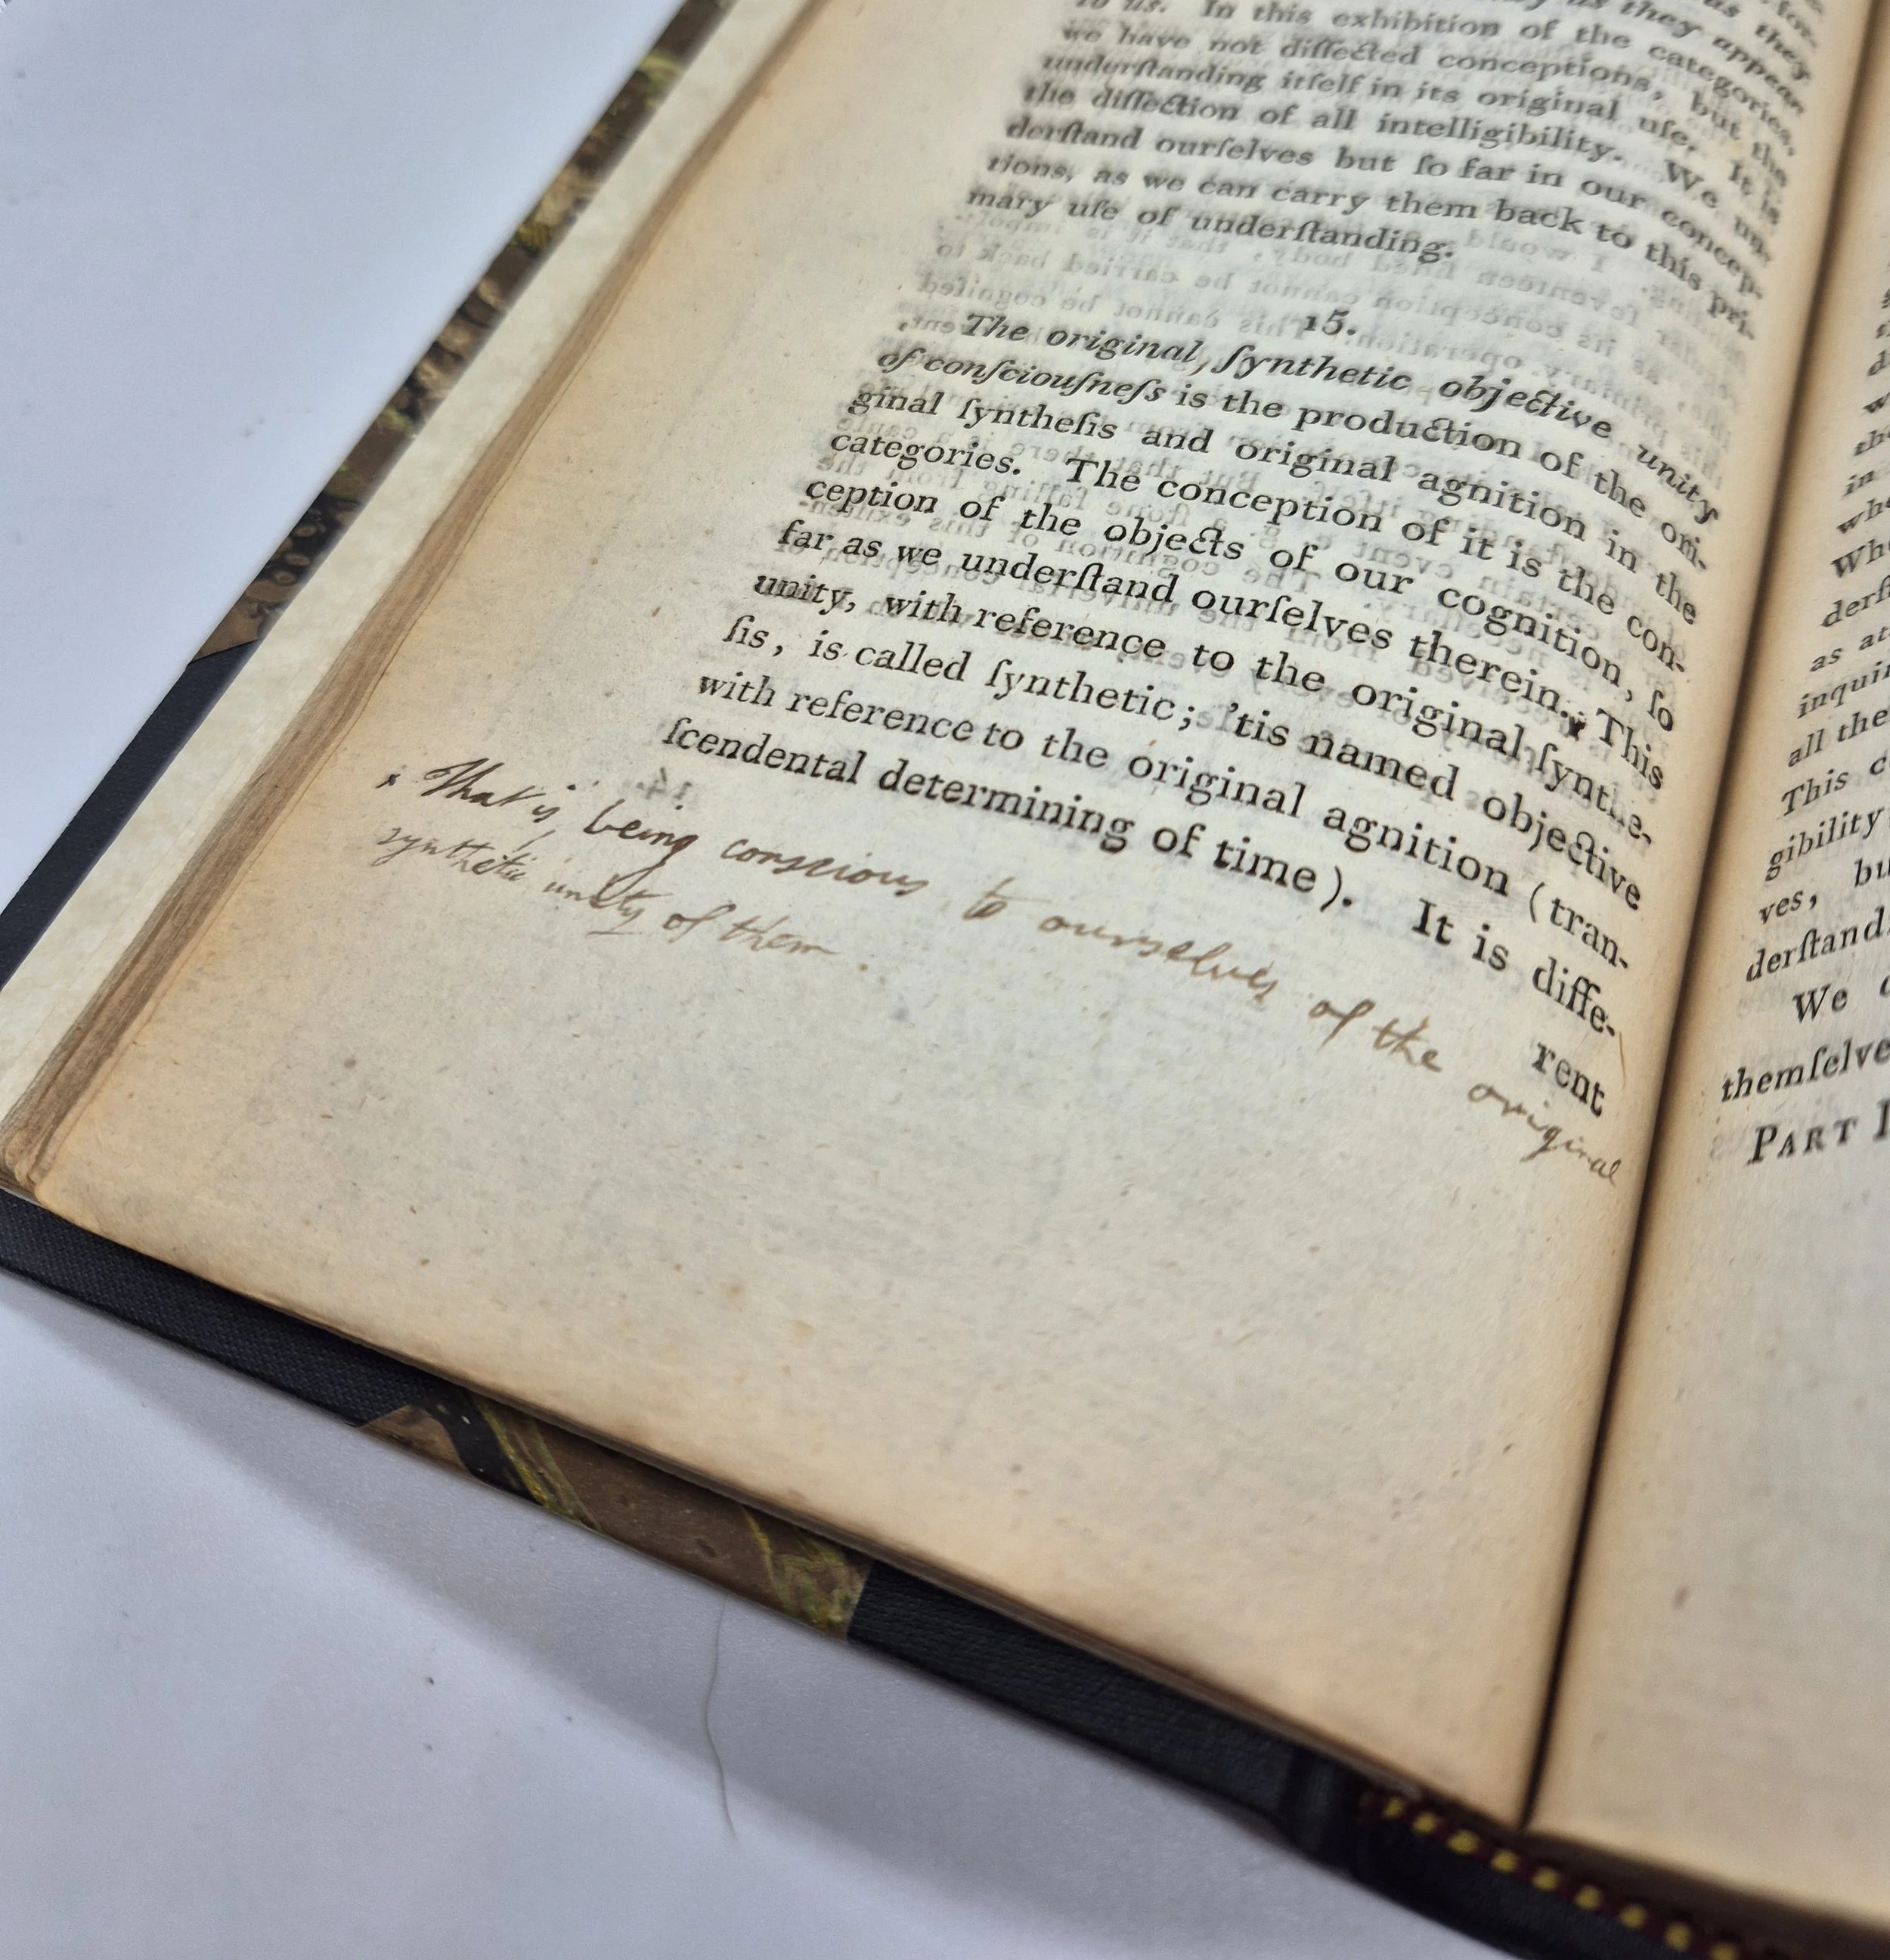 as they
they appear
to us. In this exhibition of the categories,
we have not diſſected conceptions, but the
underſtanding itſelf in its original uſe. It is
the diſſection of all intelligibility. We un-
derſtand ourſelves but ſo far in our concep-
tions, as we can carry them back to this pri-
mary uſe of underſtanding.
15.
The original, ſynthetic objective unity
of conſciouſneſs is the production of the ori-
ginal ſyntheſis and original agnition in the
categories. The conception of it is the con-
ception of the objects of our cognition, ſo
far as we underſtand ourſelves therein.* This
unity, with reference to the original ſynthe-
ſis, is called ſynthetic; 'tis named objective
with reference to the original agnition (tran-
ſcendental determining of time). It is diffe-
rent
* That is, being conscious to ourselves of the original
synthetic unity of them.
in
Whe
derſt
as at
inquir
all the
This c
gibility
ves, bu
derſtand
We
themſelve
PART I